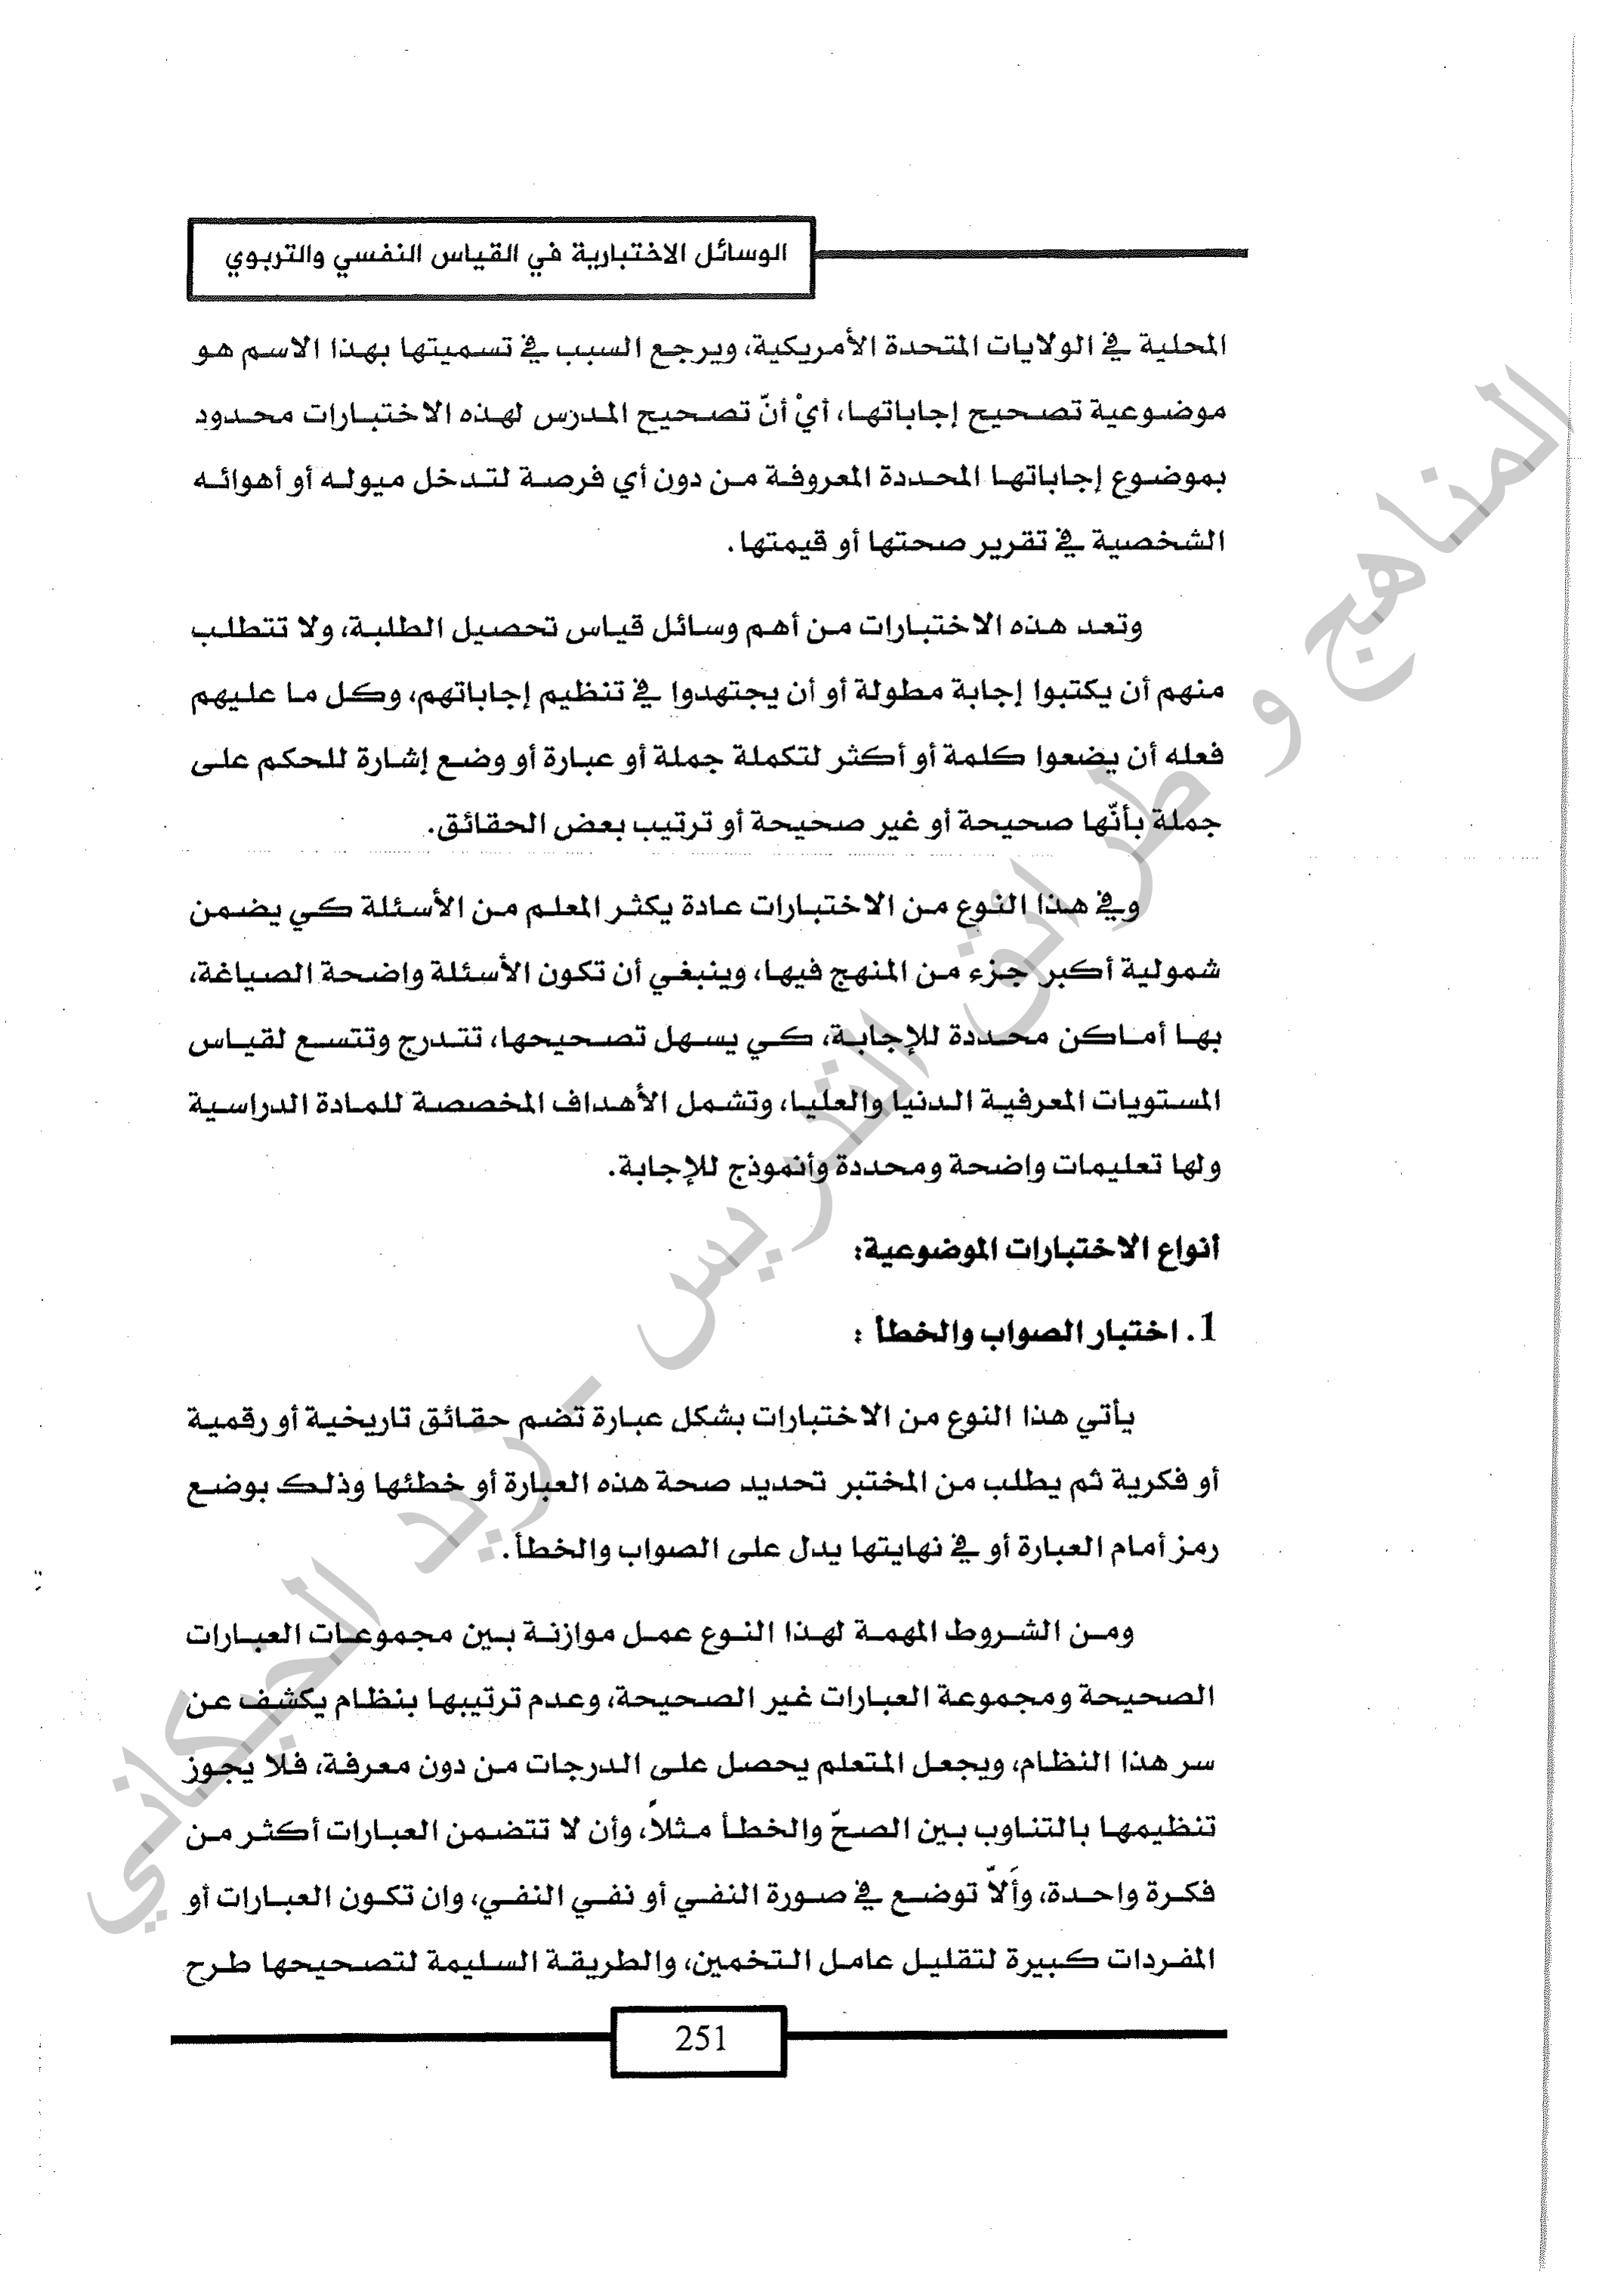 الوسائل الاختبارية في القياس النفسي والتربوي
المحلية في الولايات المتحدة الأمريكية، ويرجع السبب في تسميتها بهذا الاسم هو
موضوعية تصحيح إجاباتها، أيْ أنّ تصحيح المدرس لهذه الاختبارات محدود
بموضوع إجاباتها المحددة المعروفة من دون أي فرصة لتدخل ميوله أو أهوائه
الشخصية في تقرير صحتها أو قيمتها.
وتعد هذه الاختبارات من أهم وسائل قياس تحصيل الطلبة، ولا تتطلب
منهم أن يكتبوا إجابة مطولة أو أن يجتهدوا في تنظيم إجاباتهم، وكل ما عليهم
فعله أن يضعوا كلمة أو أكثر لتكملة جملة أو عبارة أو وضع إشارة للحكم على
جملة بأنّها صحيحة أو غير صحيحة أو ترتيب بعض الحقائق.
وفي هذا النوع من الاختبارات عادة يكثر المعلم من الأسئلة كي يضمن
شمولية أكبر جزء من المنهج فيها، وينبغي أن تكون الأسئلة واضحة الصياغة،
بها أماكن محددة للإجابة، كي يسهل تصحيحها، تتدرج وتتسع لقياس
المستويات المعرفية الدنيا والعليا، وتشمل الأهداف المخصصة للمادة الدراسية
ولها تعليمات واضحة ومحددة وأنموذج للإجابة.
أنواع الاختبارات الموضوعية:
1. اختبار الصواب والخطأ :
يأتي هذا النوع من الاختبارات بشكل عبارة تضم حقائق تاريخية أو رقمية
أو فكرية ثم يطلب من المختبر تحديد صحة هذه العبارة أو خطئها وذلك بوضع
رمز أمام العبارة أو في نهايتها يدل على الصواب والخطأ.
ومن الشروط المهمة لهذا النوع عمل موازنة بين مجموعات العبارات
الصحيحة ومجموعة العبارات غير الصحيحة، وعدم ترتيبها بنظام يكشف عن
سر هذا النظام، ويجعل المتعلم يحصل على الدرجات من دون معرفة، فلا يجوز
تنظيمها بالتناوب بين الصحّ والخطأ مثلاً، وأن لا تتضمن العبارات أكثر من
فكرة واحدة، وألاّ توضع في صورة النفي أو نفي النفي، وان تكون العبارات أو
المفردات كبيرة لتقليل عامل التخمين، والطريقة السليمة لتصحيحها طرح
251
المناهج و طرائق التدريس - زيد الحيكاني